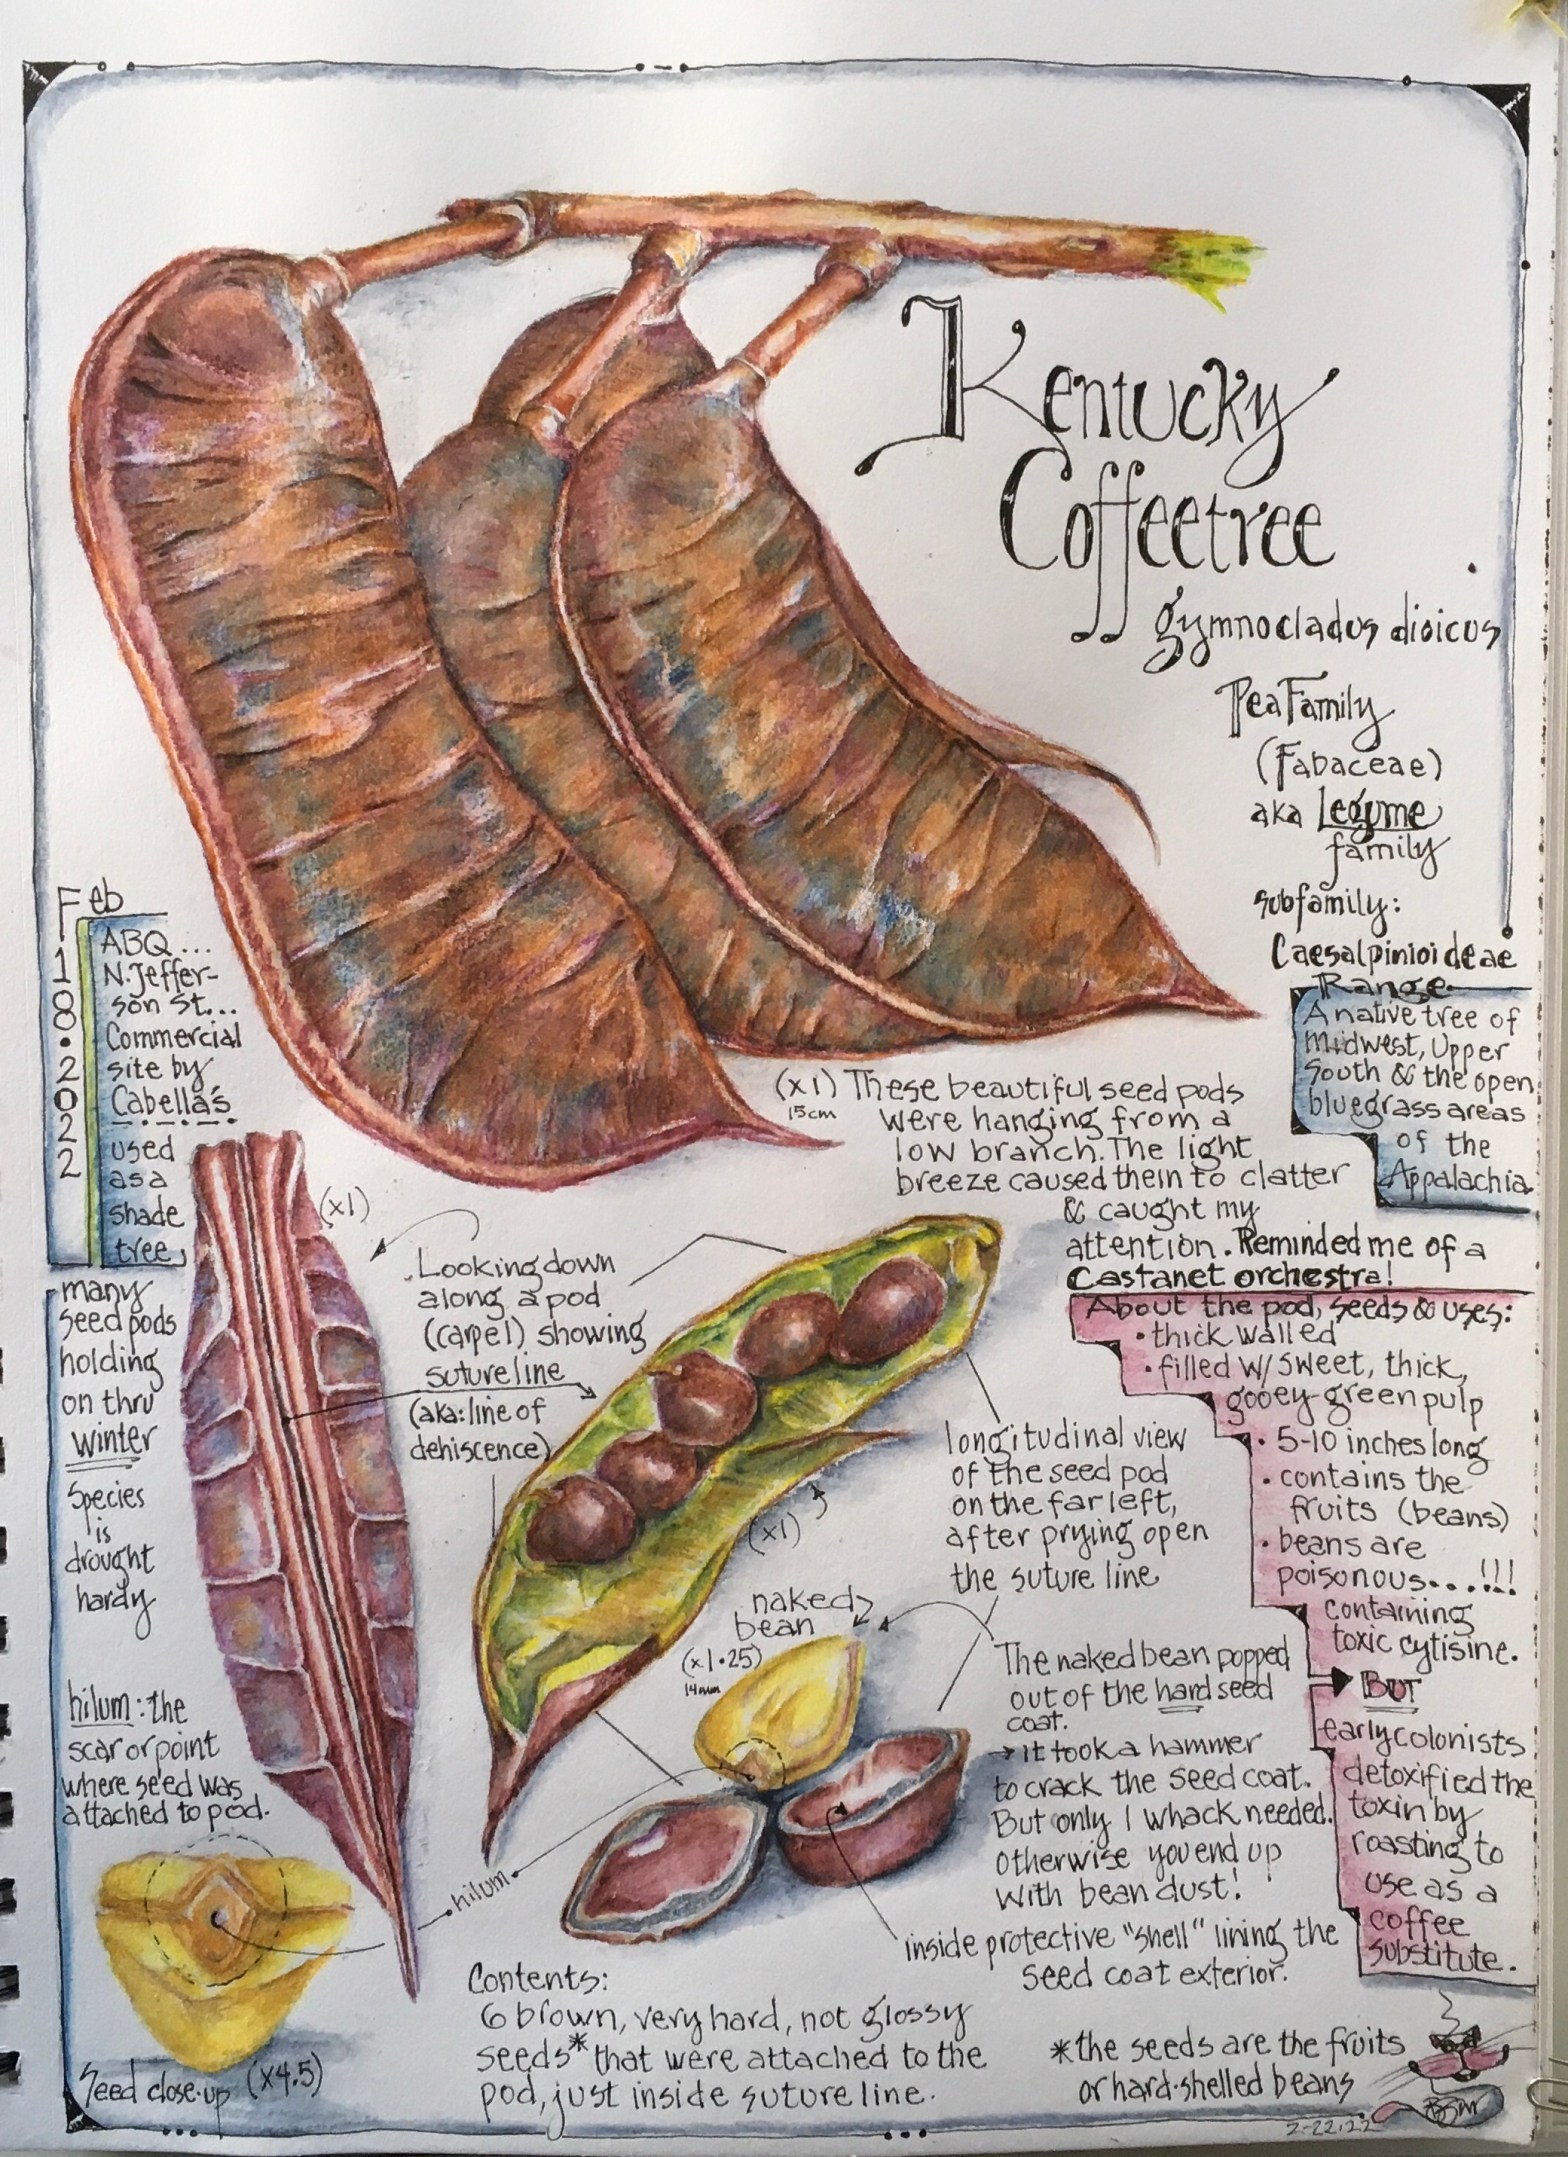 Kentucky
Coffeetree
gymnocladus dioicus
Pea Family
(Fabaceae)
aka Legume
family
subfamily:
Caesalpinioideae
Range
A native tree of
Midwest, Upper
South & the open
bluegrass areas
of the
Appalachia
Feb
10•2022
ABQ...
N. Jeffer-
son St...
Commercial
site by
Cabella's
used
as a
shade
tree
many
seed pods
holding
on thru
winter
Species
is
drought
hardy
hilum: the
scar or point
where seed was
attached to pod.
Seed close-up (x4.5)
(x1)
15cm
These beautiful seed pods
were hanging from a
low branch. The light
breeze caused them to clatter
& caught my
attention. Reminded me of a
Castanet orchestra!
(x1)
Looking down
along a pod
(carpel) showing
suture line
(aka: line of
dehiscence)
longitudinal view
of the seed pod
on the far left,
after prying open
the suture line
(x1)
naked
bean
(x1.25)
14mm
The naked bean popped
out of the hard seed
coat.
→ it took a hammer
to crack the seed coat.
But only 1 whack needed.
Otherwise you end up
with bean dust!
inside protective "shell" lining the
seed coat exterior.
hilum
About the pod, seeds & uses:
• thick walled
• filled w/ sweet, thick,
gooey green pulp
• 5-10 inches long
• contains the
fruits (beans)
• beans are
poisonous...!!!
containing
toxic cytisine.
BUT
early colonists
detoxified the
toxin by
roasting to
use as a
coffee
substitute.
Contents:
6 brown, very hard, not glossy
seeds* that were attached to the
pod, just inside suture line.
*the seeds are the fruits
or hard-shelled beans
2-22-22